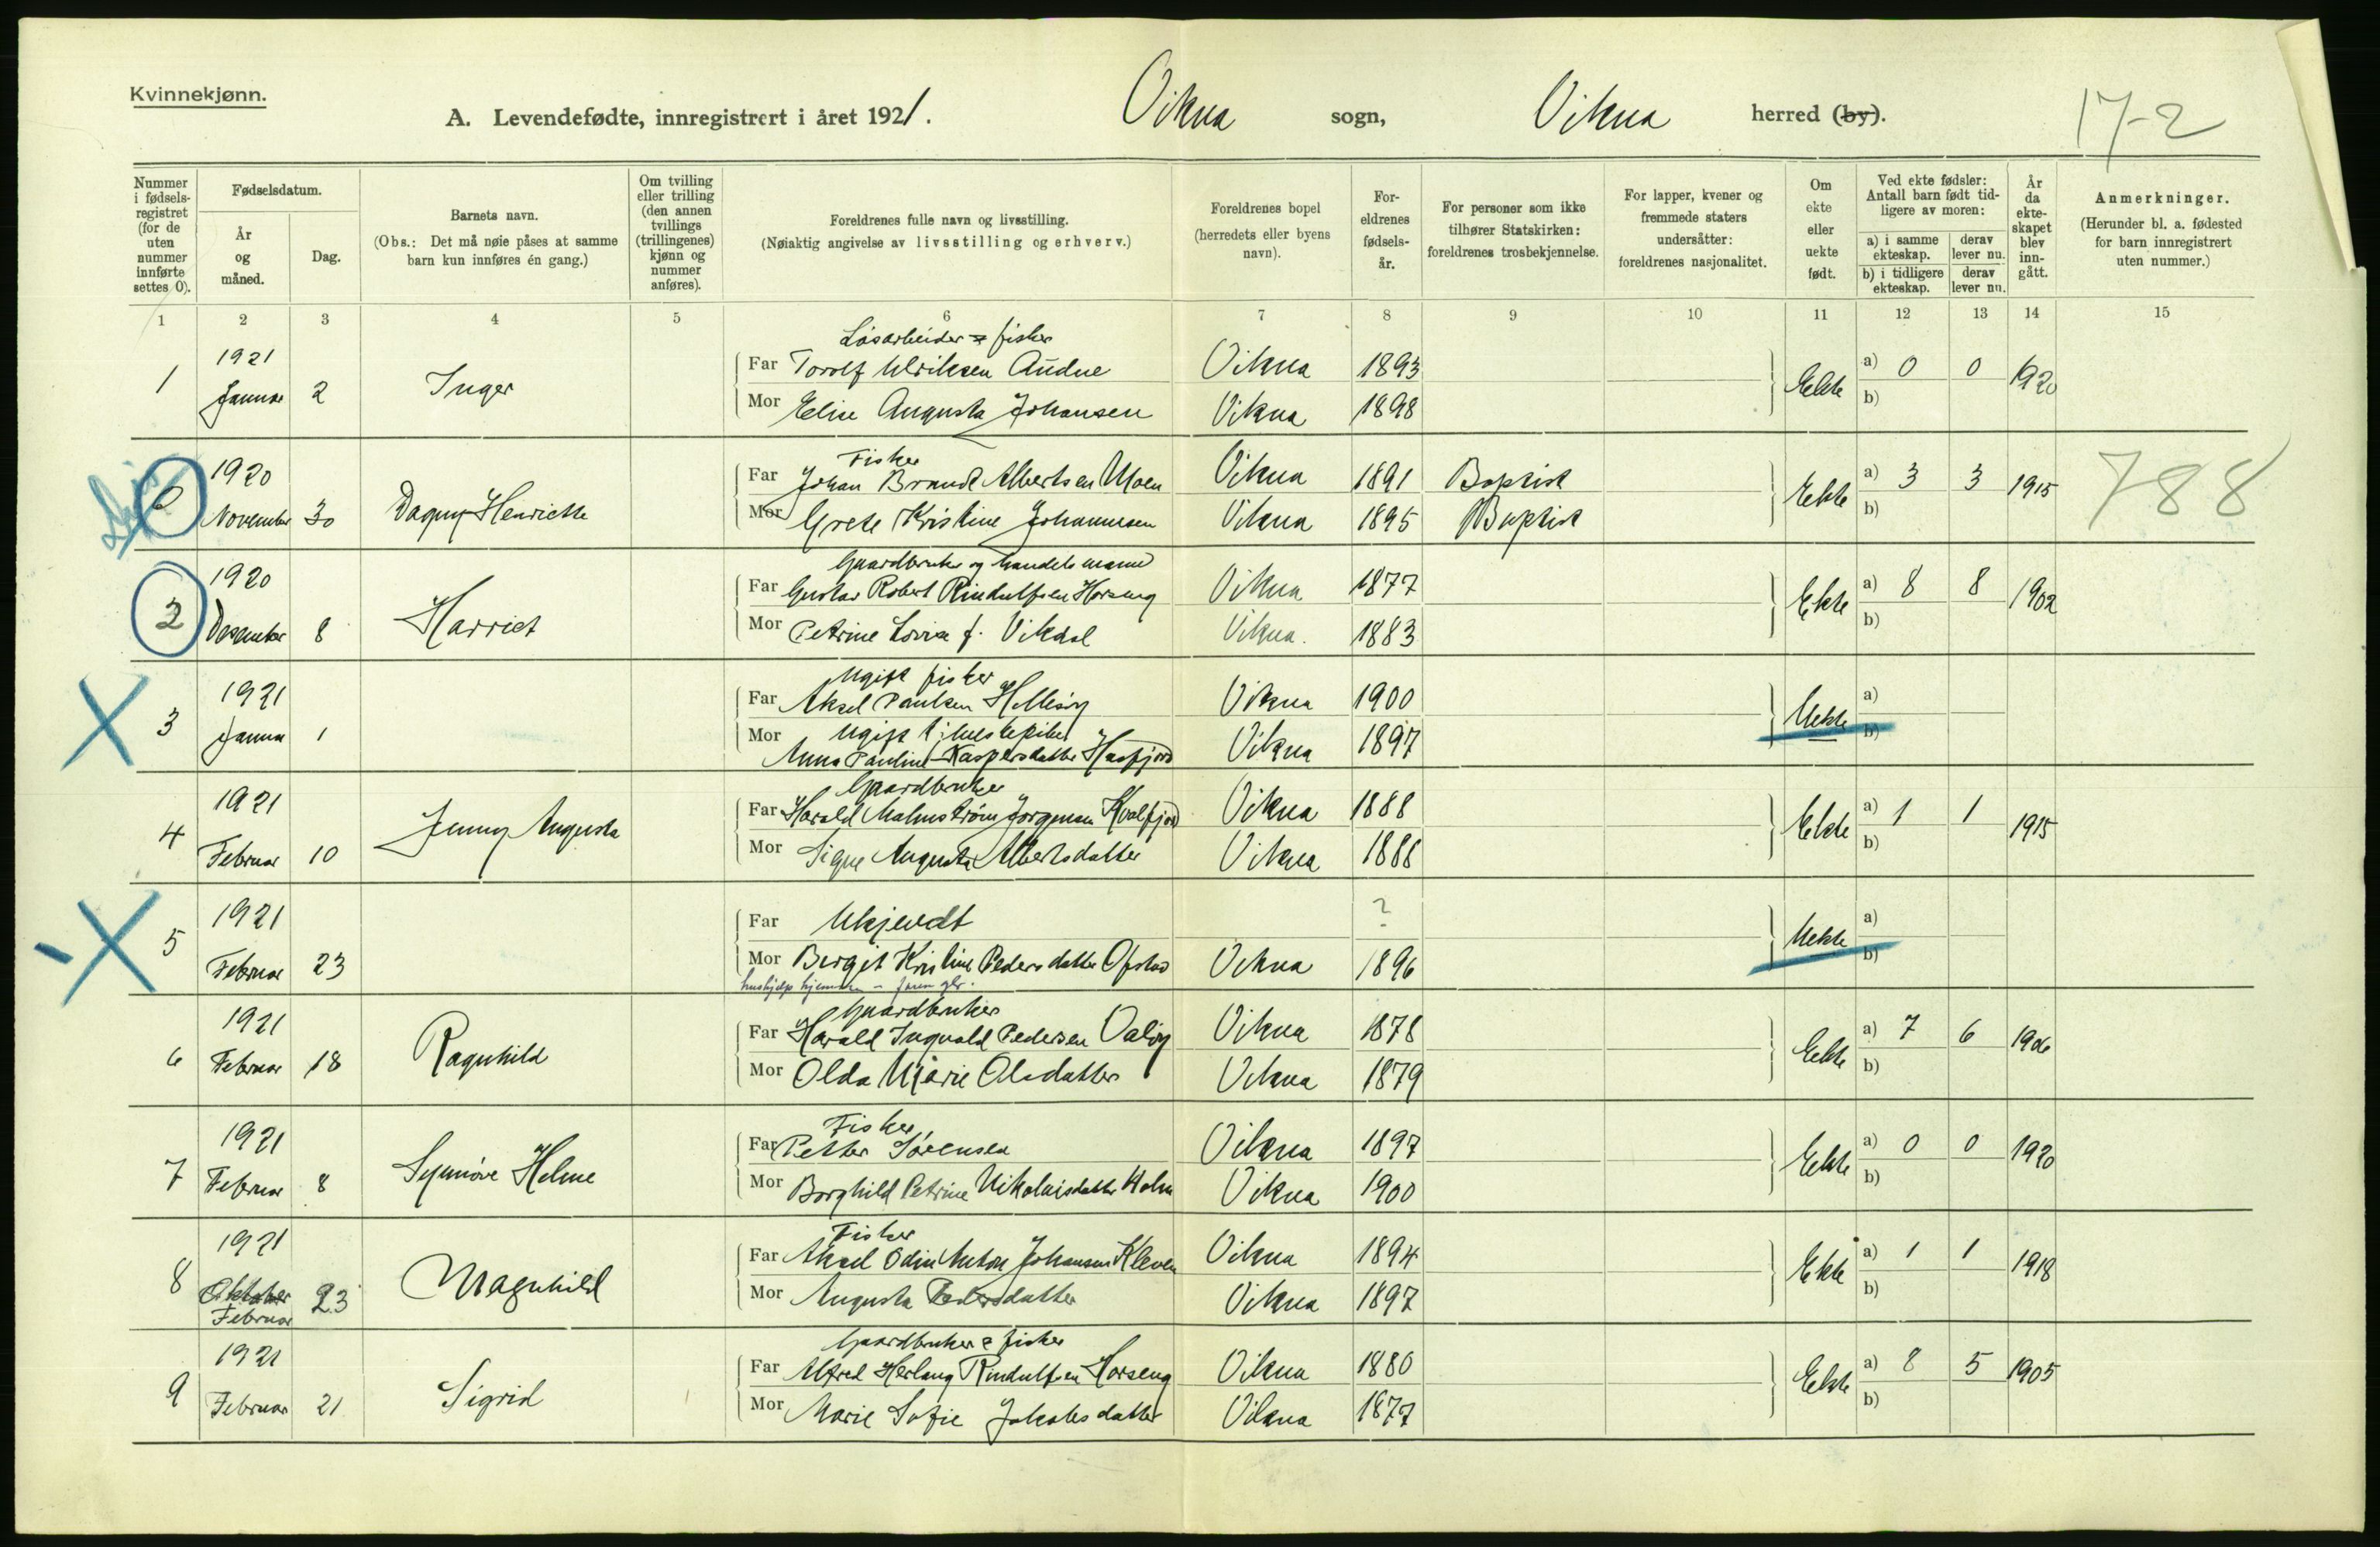 Kvinnekjønn.
A. Levendefødte, innregistrert i året 1921. Vikna sogn, Vikna herred (by).
17-2
Nummer i fødselsregistret (for de uten nummer innførte settes 0).
Fødselsdatum.
År og måned.
Dag.
Barnets navn.
(Obs.: Det må nøie påses at samme barn kun innføres én gang.)
Om tvilling eller trilling (den annen tvillings (trillingenes) kjønn og nummer anføres).
Foreldrenes fulle navn og livsstilling.
(Nøiaktig angivelse av livsstilling og erhverv.)
Foreldrenes bopel (herredets eller byens navn).
Foreldrenes fødselsår.
For personer som ikke tilhører Statskirken: foreldrenes trosbekjennelse.
For lapper, kvener og fremmede staters undersåtter: foreldrenes nasjonalitet.
Om ekte eller uekte født.
Ved ekte fødsler: Antall barn født tidligere av moren:
a) i samme ekteskap. derav lever nu.
b) i tidligere ekteskap. derav lever nu.
År da ekteskapet blev inngått.
Anmerkninger.
(Herunder bl. a. fødested for barn innregistrert uten nummer.)
1 2 3 4 5 6 7 8 9 10 11 12 13 14 15
Løsarbeider = fisker
1 1921 Januar 2 Inger Far Torolf Ulriksen Audne Vikna 1893 Ekte a) 0 0 1920
Mor Elise Augusta Johansen Vikna 1898 b)
Fisker
0 1920 November 30 Dagny Henriette Far Johan Brandt Albertsen Moen Vikna 1891 Baptist Ekte a) 3 3 1915 788
Mor Grete Kristine Johannesen Vikna 1895 Baptist b)
Gaardbruker og handelsmand
2 1920 Desember 8 Harriet Far Gustav Robert Rindulfsen Horseng Vikna 1877 Ekte a) 8 8 1902
Mor Petrine Lovise f. Vikdal Vikna. 1883 b)
Ugift fisker
3 1921 Januar 1 Far Aksel Paulsen Vikna 1900 Uekte a)
Mor Ugift
Anna Pauline Kaspersdatter Hasfjord Vikna 1897 b)
Gaardbruker
4 1921 Februar 10 Jenny Augusta Far Harald Malmstrøm Jørgensen Kvalfjord Vikna 1888 Ekte a) 1 1 1915
Mor Signe Augusta Albertsdatter Vikna 1888 b)
5 1921 Februar 23 Far Ukjendt ? Uekte a)
Mor Bergit Kristine Pedersdatter Ofstad Vikna 1896 b)
hushjelp
Gaardbruker
6 1921 Februar 18 Ragnhild Far Harald Ingvald Pedersen Valøy Vikna 1878 Ekte a) 7 6 1906
Mor Olda Marie Olsdatter Vikna 1879 b)
Fisker
7 1921 Februar 8 Synnøve Helene Far Petter Sørensen Vikna 1897 Ekte a) 0 0 1920
Mor Borghild Petrine Nikolaisdatter Holm Vikna 1900 b)
Fisker
8 1921 Oktober Februar 23 Magnhild Far Aksel Odin Anton Johansen Kleven Vikna 1894 Ekte a) 1 1 1918
Mor Augusta Pedersdatter Vikna 1897 b)
Gaardbruker = fisker
9 1921 Februar 21 Sigrid Far Alfred Herlaug Rindulfsen Horseng Vikna 1880 Ekte a) 8 5 1905
Mor Marie Sofie Jakobsdatter Vikna 1877 b)